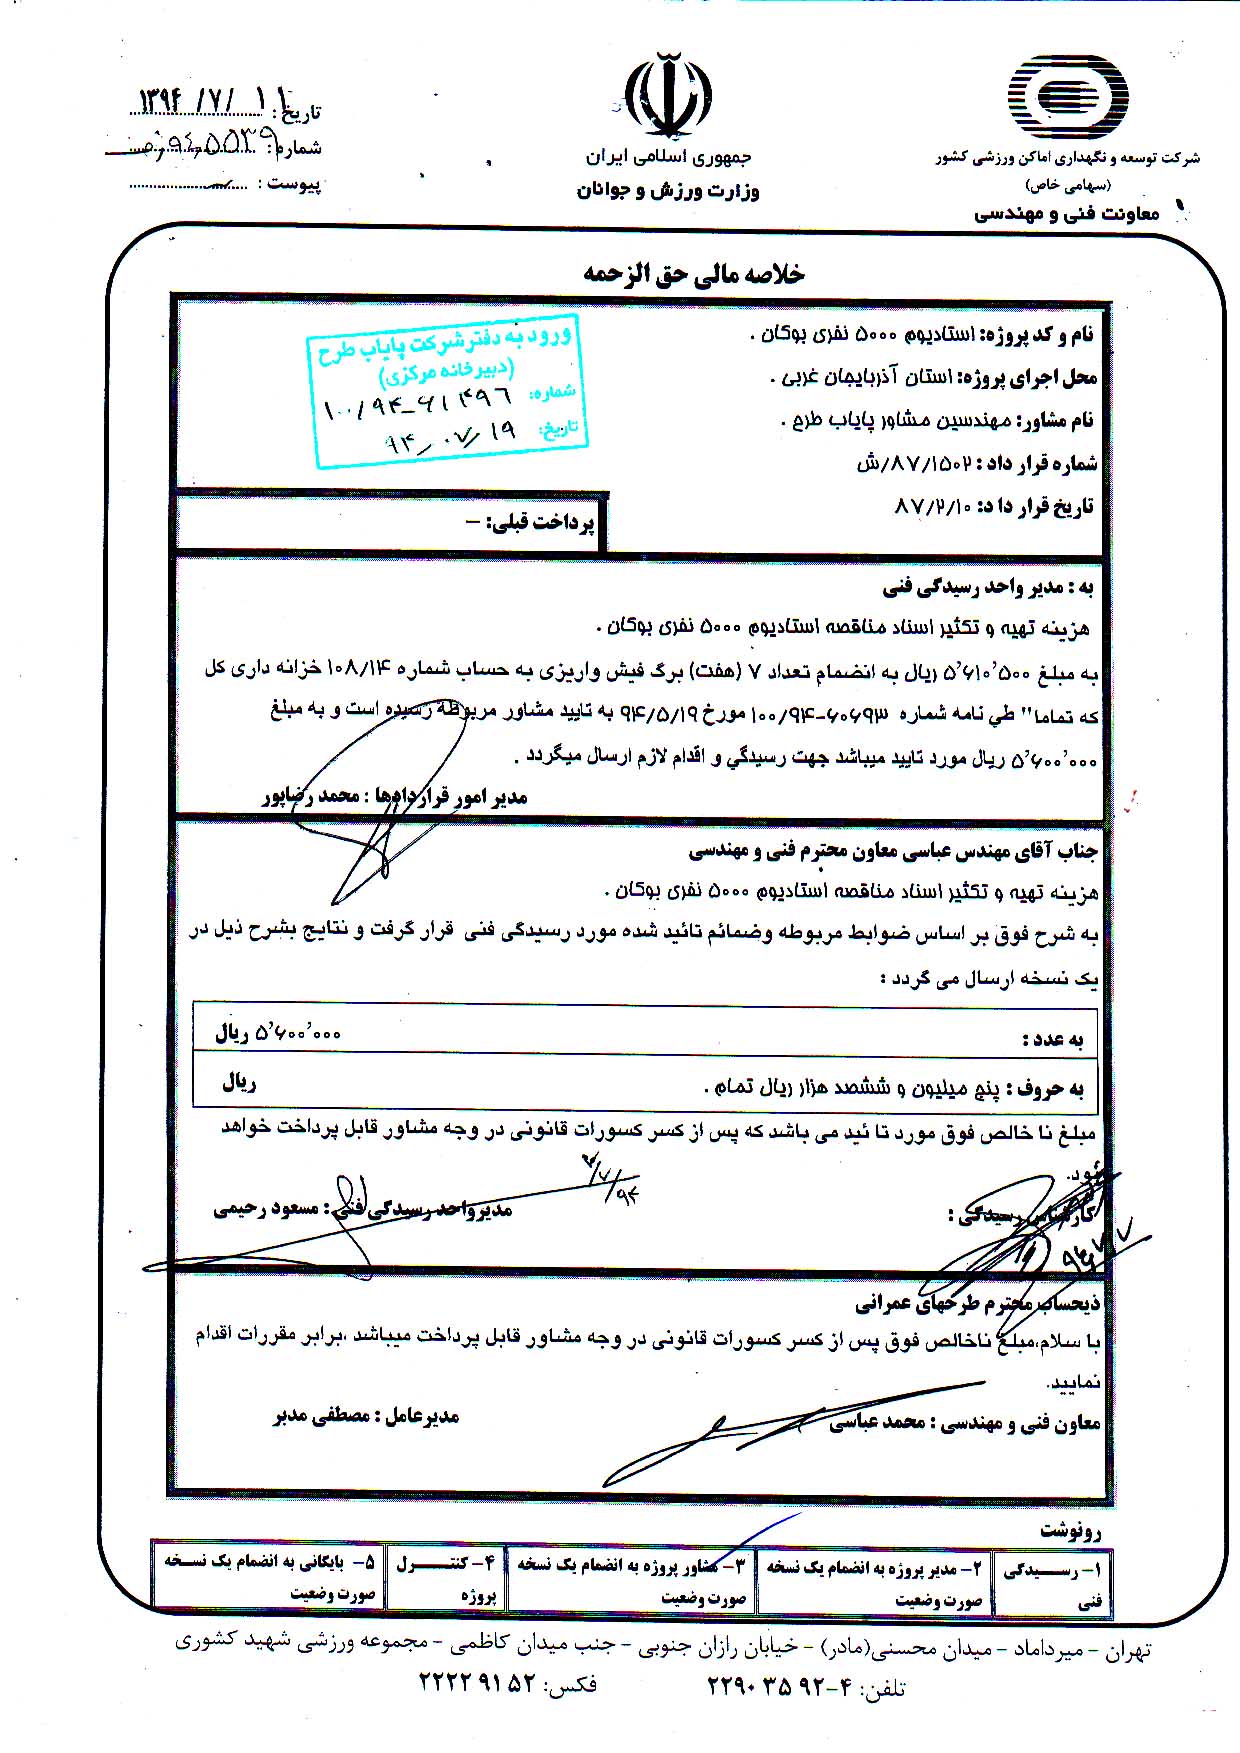 شرکت توسعه و نگهداری اماکن ورزشی کشور
(سهامی خاص)
معاونت فنی و مهندسی
جمهوری اسلامی ایران
وزارت ورزش و جوانان
تاریخ: ۱۳۹۴/۷/۱۱
شماره:
پیوست:
خلاصه مالی حق الزحمه
نام و کد پروژه: استادیوم ۵۰۰۰ نفری بوکان .
محل اجرای پروژه: استان آذربایجان غربی .
نام مشاور: مهندسین مشاور پایاب طرح .
شماره قرار داد : ۸۷/۱۵۰۲/ش
تاریخ قرار دا د: ۸۷/۲/۱۰
ورود به دفتر شرکت پایاب طرح
(دبیرخانه مرکزی)
شماره: ۱۰۰/۹۴-۶۱۴۹۶
تاریخ: ۹۴/۰۷/۱۹
پرداخت قبلی: –
به : مدیر واحد رسیدگی فنی
هزینه تهیه و تکثیر اسناد مناقصه استادیوم ۵۰۰۰ نفری بوکان .
به مبلغ ۵٬۶۱۰٬۵۰۰ ریال به انضمام تعداد ۷ (هفت) برگ فیش واریزی به حساب شماره ۱۰۸/۱۴ خزانه داری کل
که تماما" طي نامه شماره ۶۰۶۹۳-۱۰۰/۹۴ مورخ ۹۴/۵/۱۹ به تایید مشاور مربوطه رسیده است و به مبلغ
۵٬۶۰۰٬۰۰۰ ریال مورد تایید میباشد جهت رسیدگي و اقدام لازم ارسال میگردد .
مدیر امور قراردادها : محمد رضاپور
جناب آقای مهندس عباسی معاون محترم فنی و مهندسی
هزینه تهیه و تکثیر اسناد مناقصه استادیوم ۵۰۰۰ نفری بوکان .
به شرح فوق بر اساس ضوابط مربوطه وضمائم تائید شده مورد رسیدگی فنی قرار گرفت و نتایج بشرح ذیل در
یک نسخه ارسال می گردد :
به عدد : ۵٬۶۰۰٬۰۰۰ ریال
به حروف : پنج میلیون و ششصد هزار ریال تمام . ریال
مبلغ نا خالص فوق مورد تا ئید می باشد که پس از کسر کسورات قانونی در وجه مشاور قابل پرداخت خواهد
بود.
کارشناس رسیدگی : مدیرواحد رسیدگی فنی : مسعود رحیمی
ذیحساب محترم طرحهای عمرانی
با سلام،مبلغ ناخالص فوق پس از کسر کسورات قانونی در وجه مشاور قابل پرداخت میباشد ،برابر مقررات اقدام
نمایید.
معاون فنی و مهندسی : محمد عباسی مدیرعامل : مصطفی مدبر
رونوشت
۱- رسیدگی فنی
۲- مدیر پروژه به انضمام یک نسخه صورت وضعیت
۳- مشاور پروژه به انضمام یک نسخه صورت وضعیت
۴- کنترل پروژه
۵- بایگانی به انضمام یک نسخه صورت وضعیت
تهران – میرداماد – میدان محسنی(مادر) – خیابان رازان جنوبی – جنب میدان کاظمی – مجموعه ورزشی شهید کشوری
تلفن: ۴-۹۲ ۳۵ ۲۲۹۰ فکس: ۵۲ ۹۱ ۲۲۲۲